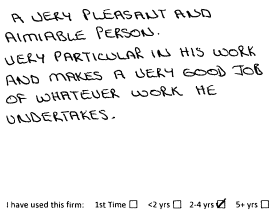 A VERY PLEASANT AND
AIMIABLE PERSON.
VERY PARTICULAR IN HIS WORK
AND MAKES A VERY GOOD JOB
OF WHATEVER WORK HE
UNDERTAKES.
I have used this firm: 1st Time ☐ <2 yrs ☐ 2-4 yrs ☑ 5+ yrs ☐